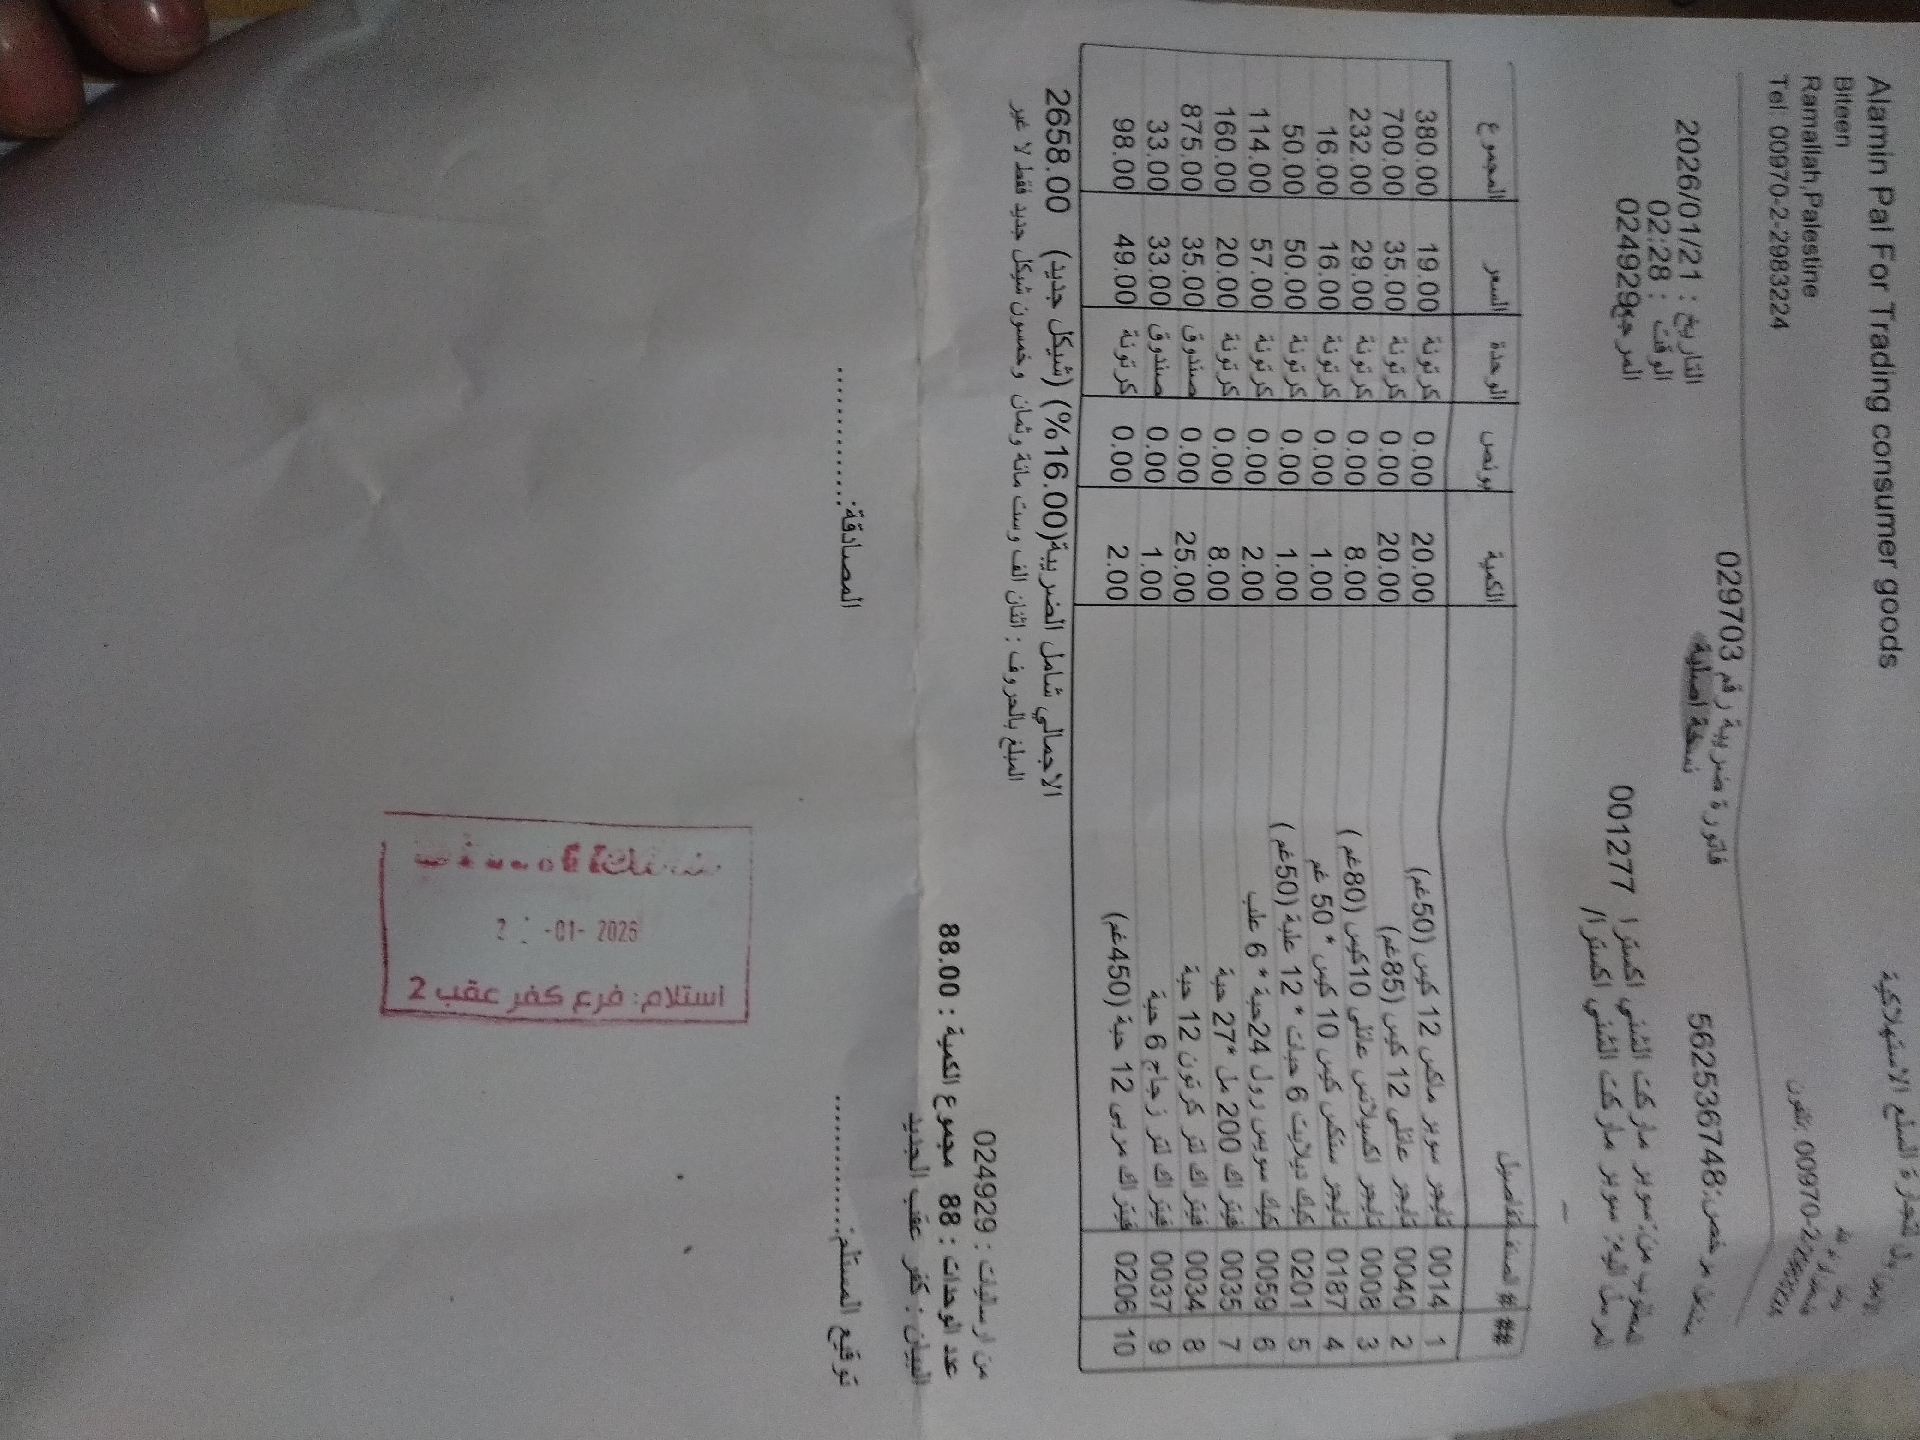 Alamin Pal For Trading consumer goods
Biteen
Ramallah,Palestine
Tel :00970-2-2983224
لتجارة السلع الاستهلاكية
تلفون: 00970-2-2983224
فاتورة ضريبة رقم 029703
نسخة اصلية
مشتغل مرخص:562536748
التاريخ : 2026/01/21
الوقت : 02:28
المرجع024929
المطلوب من:سوبر ماركت الثلثي اكسترا 001277
المرسل اليه: سوبر ماركت الثلثي اكسترا/
## # الصنف التفاصيل الكمية بونص الوحدة السعر المجموع
1 0014 تايجر سوبر ملكس 12 كيس (50غم) 20.00 0.00 كرتونة 19.00 380.00
2 0040 تايجر عائلي 12 كيس (85غم) 20.00 0.00 كرتونة 35.00 700.00
3 0008 تايجر اكسبلائس عائلي 10كيس (80غم) 8.00 0.00 كرتونة 29.00 232.00
4 0187 تايجر ستكس كيس 10 كيس * 50 غم 1.00 0.00 كرتونة 16.00 16.00
5 0201 كيك ديلايت 6 حبات * 12 علبة (50غم) 1.00 0.00 كرتونة 50.00 50.00
6 0059 كيك سويس رول 24حبة * 6 علب 2.00 0.00 كرتونة 57.00 114.00
7 0035 فيتراك 200 مل *27 حبة 8.00 0.00 كرتونة 20.00 160.00
8 0034 فيتراك لتر كرتون 12 حبة 25.00 0.00 صندوق 35.00 875.00
9 0037 فيتراك لتر زجاج 6 حبة 1.00 0.00 صندوق 33.00 33.00
10 0206 فيتراك مربى 12 حبة (450غم) 2.00 0.00 كرتونة 49.00 98.00
الاجمالي شامل الضريبة(16.00%) (شيكل جديد) 2658.00
المبلغ بالحروف : اثنان الف وست مائة وثمان وخمسون شيكل جديد فقط لا غير
من ارساليات : 024929
عدد الوحدات : 88 مجموع الكمية : 88.00
البيان : كفر عقب الجديد
توقيع المستلم:............... المصادقة:...............
-01- 2026
استلام: فرع كفر عقب 2